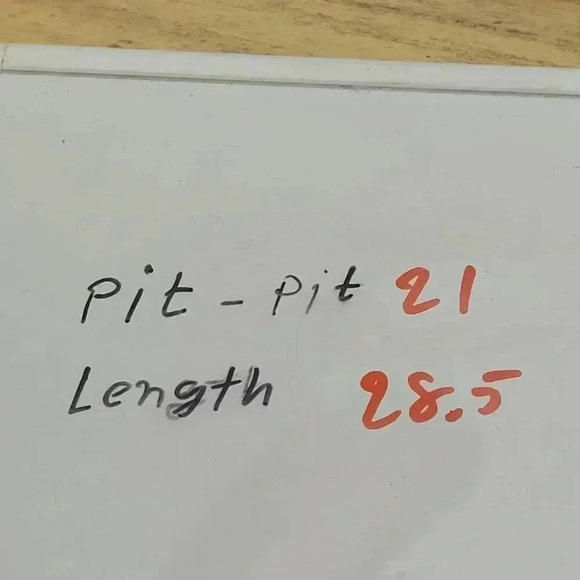 Pit - Pit 21
Length 28.5